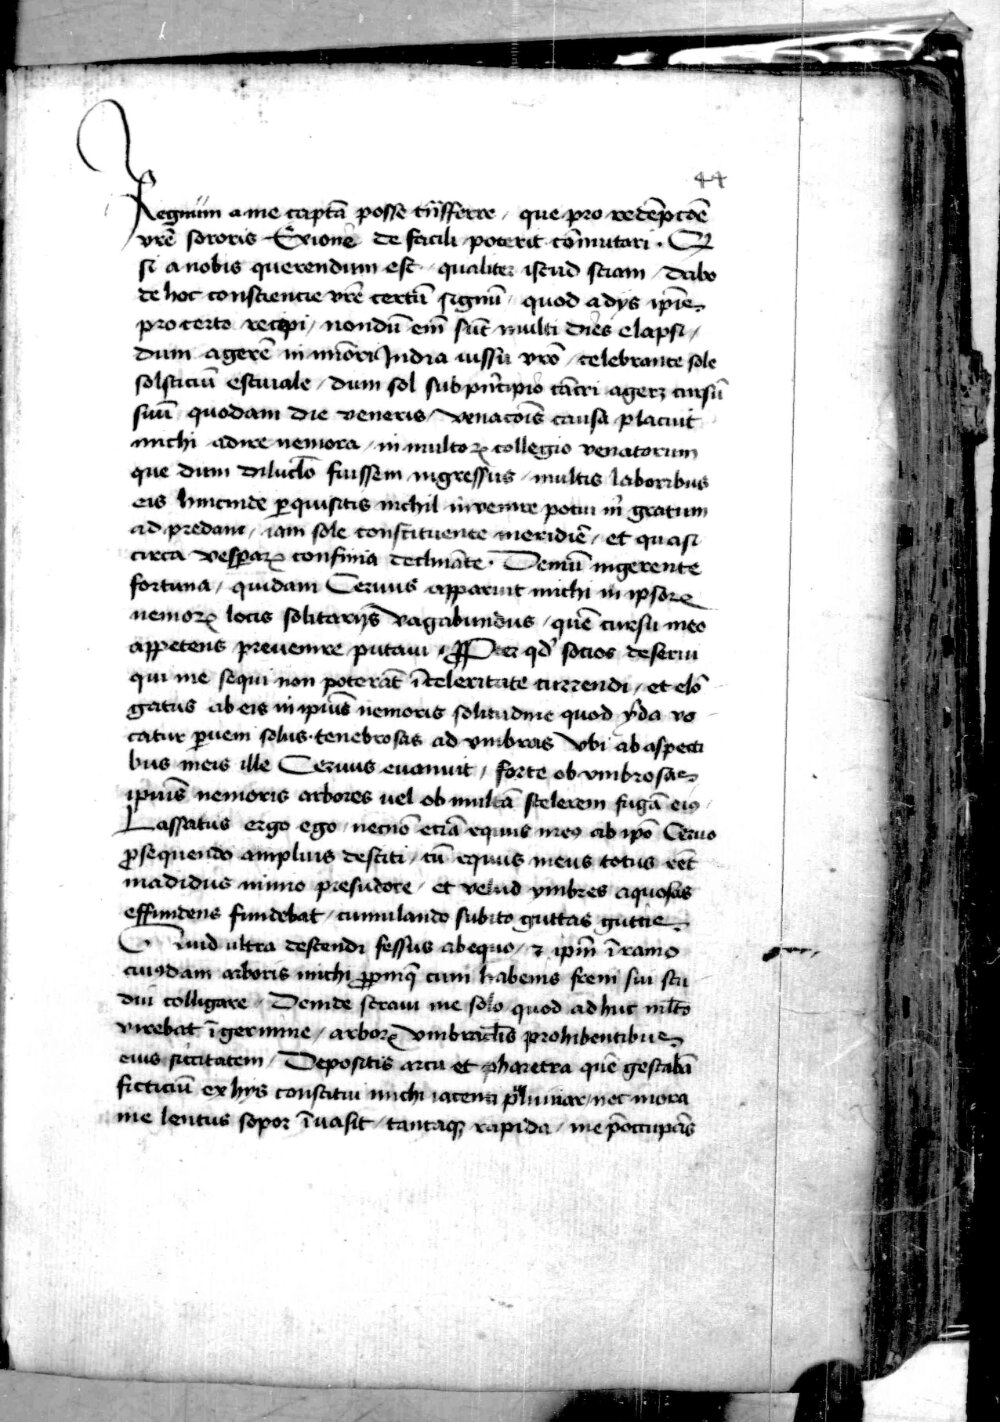 44
Regnum a me captā posse trāsferre / que pro redēpcōe
vrē sororis Exione de facili poterit cōmutari . Q
si a nobis querendum est / qualiter istud sciam / dabo
de hoc consciencie vrē certū signū / quod a dijs ipīe
pro certo recepi / nondū em̄ sūt multi dies elapsi /
dum agerē in minori India iussu vrō / celebrante sole
solsticiū estiuale / dum sol sub prīcipio cācri ageret cursū
suū / quodam die veneris / venacōis causa placuit
michi adire nemora / in multoꝝ collegio venatorum
que dum diluclo fuissem ingressus / multis laboribus
eis hincinde ꝑquisitis nichil inuenire potui m̄ gratum
ad predam / iam sole constituente meridiē / et quasi
circa vesperaꝝ confinia declināte . Demū ingerente
fortuna / quidam Ceruus apparuit michi in ipsoꝝ
nemoꝝ locis solitarijs vagabundus / quē cursu meo
appetens preuenire putaui / qd' socios deserui
qui me sequi non poterāt ī celeritate currendi / et elō
gatus ab eis in ipius nemoris solitudine quod yda vo
catur ꝑueni solus tenebrosas ad vmbras vbi ab aspecti
bus meis ille Ceruus euanuit / forte ob vmbrosas
ipius nemoris arbores uel ob multā scelerem fugā eiꝰ /
Lassatus ergo ego necnō etiā equus meꝰ ab ipo Ceruo
ꝓsequendo amplius destiti / cū equus meus totus eēt
madidus nimio presudore / et velud ymbres aquosas
effundens fundebat / cumulando subito guttas guttis
Quid ultra descendi fessus ab equo / ⁊ ipm̄ ī ramo
cuiꝰdam arboris michi ꝓpinq̄ cum habenis freni sui stu
dui colligare / Deinde straui me solo quod adhuc mlto
virebat ī germine / arboꝝ vmbraclis prohibentibus
eius siccitatem / Depositis arcu et pharetra quē gestabā
ficticiū ex hijs constitui michi iacenti puluinar / nec mora
me lentus sopor īuasit / tantaqꝫ rapida / me p̄occupās